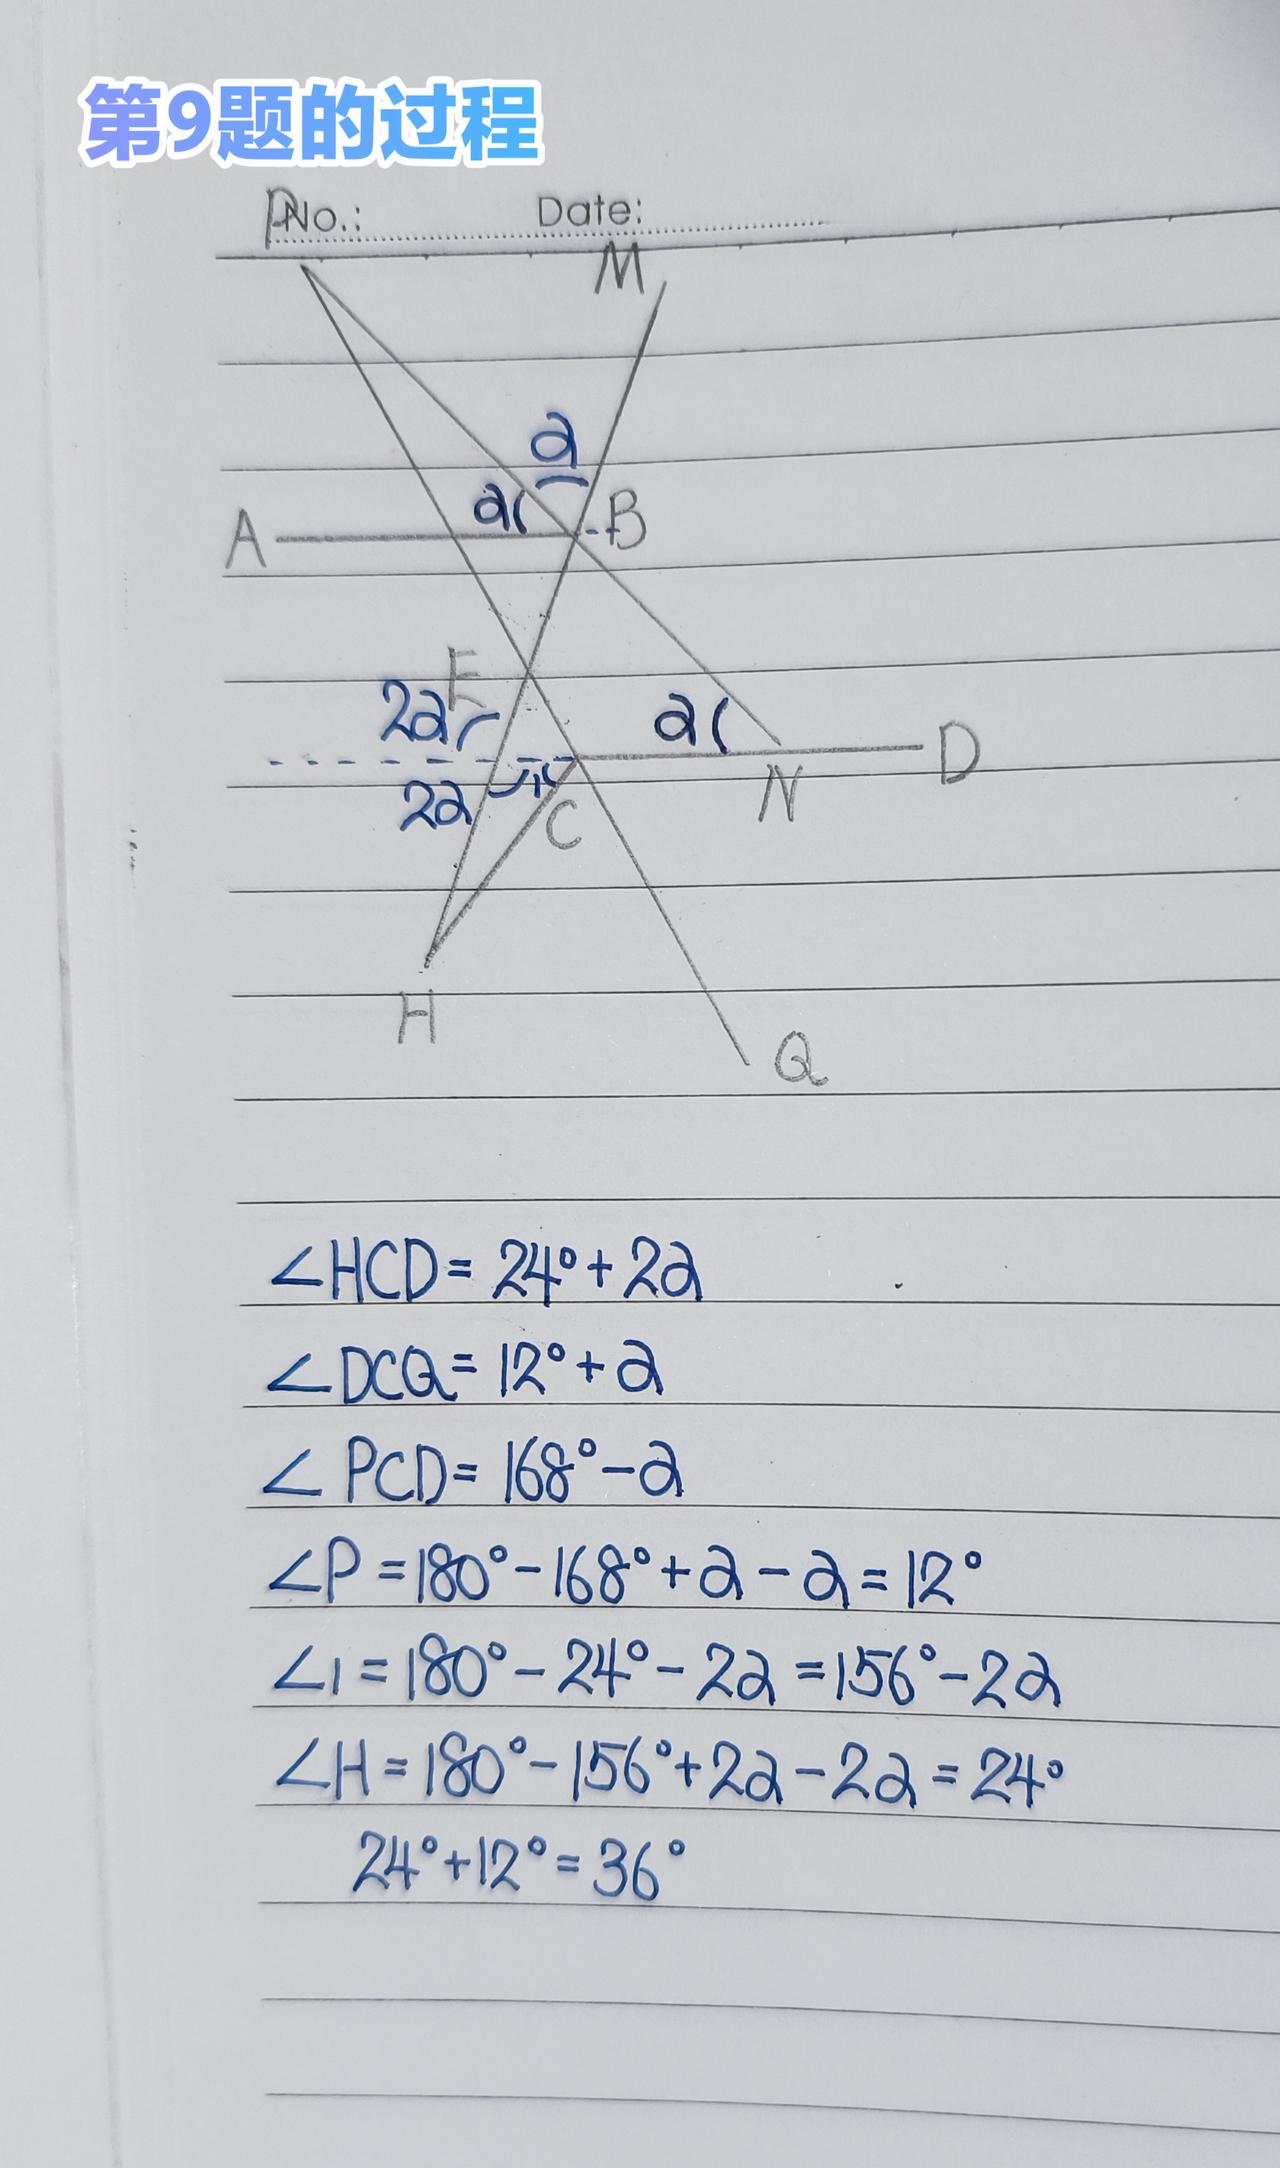 第9题的过程
P No.: Date:
M
a
a
A
B
E
2a
a
D
2a
1
C
N
H
Q
∠HCD=24°+2a
∠DCQ=12°+a
∠PCD=168°-a
∠P=180°-168°+a-a=12°
∠1=180°-24°-2a=156°-2a
∠H=180°-156°+2a-2a=24°
24°+12°=36°